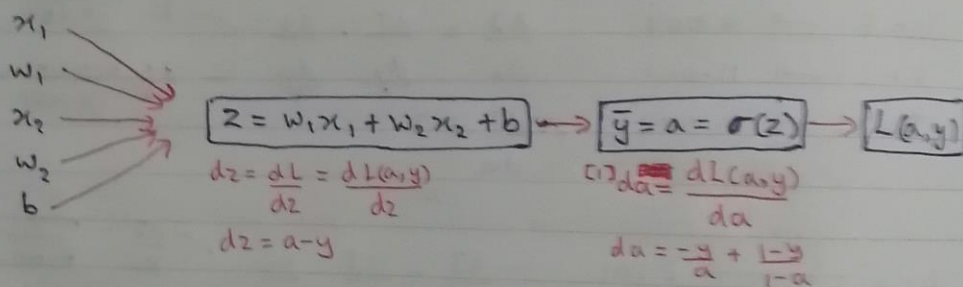 x₁
w₁
x₂
w₂
b
z = w₁x₁ + w₂x₂ + b
ȳ = a = σ(z)
L(a,y)
dz = dL/dz = dL(a,y)/dz
dz = a-y
(1) da = dL(a,y)/da
da = -y/a + 1-y/1-a